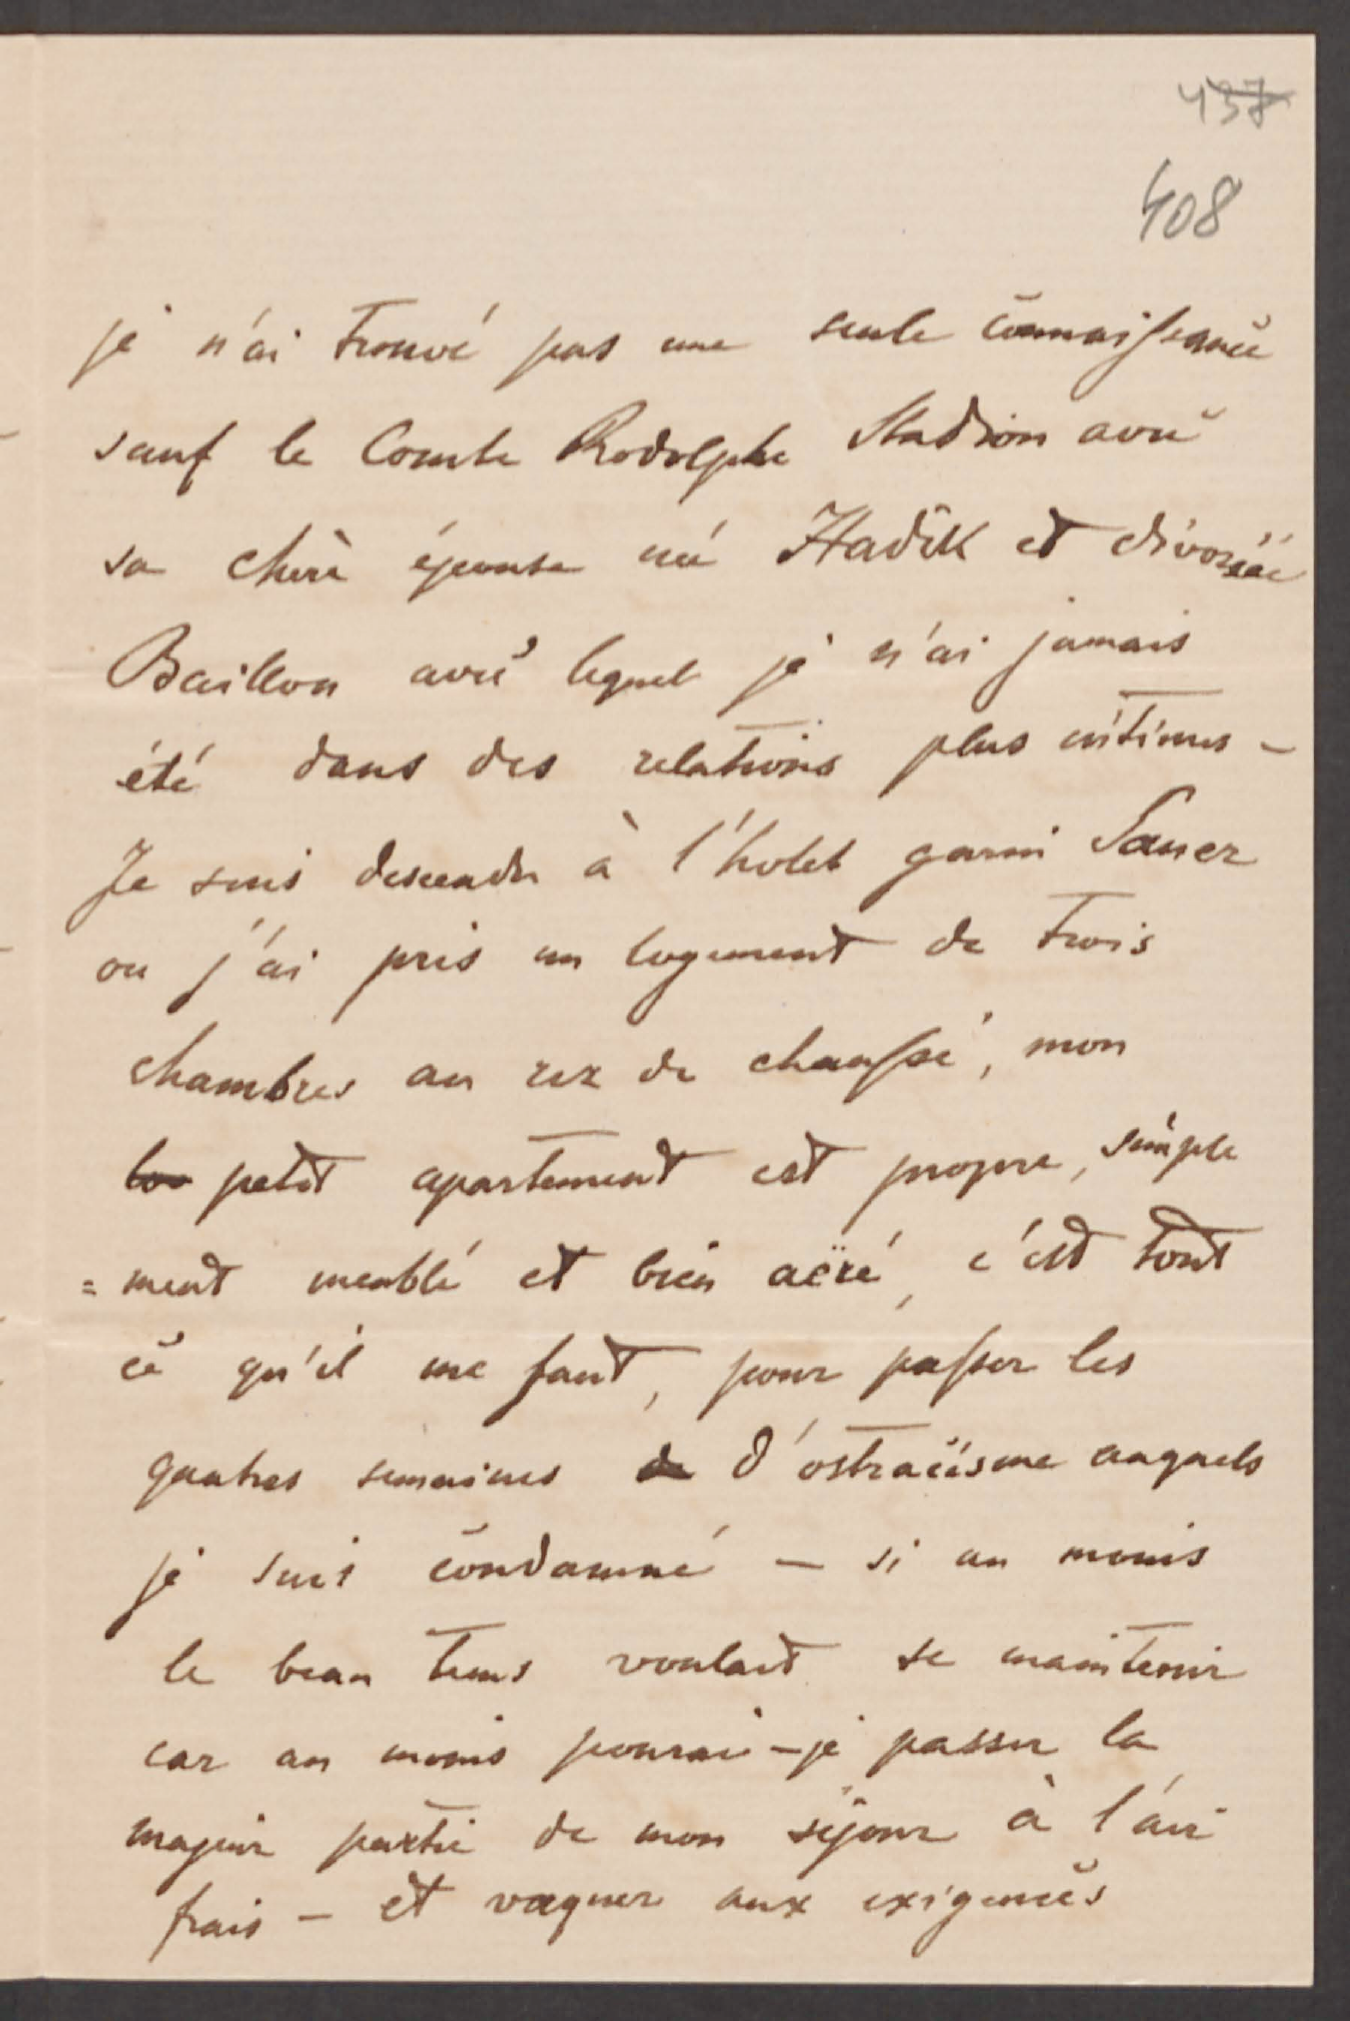 437
408
je n'ai trouvé pas une seule connaissance
sauf le Comte Rodolphe Stadion avec
sa chère épouse née Hadik et divorcée
Baillou avec lequel je n'ai jamais
été dans des relations plus intimes –
Je suis descendu à l'hotel garni Sauer
ou j'ai pris un logement de trois
chambres au rez de chaussé, mon
petit apartement est propre, simple
= ment meublé et bien aëré, c'est tout
ce qu'il me faut, pour passer les
quatres semaines de d'ostracisme auquels
je suis condamné – si au moins
le beau tems voulait se maintenir
car au moins pourai-je passer la
majeur partie de mon séjour à l'air
frais – et vaquer aux exigences